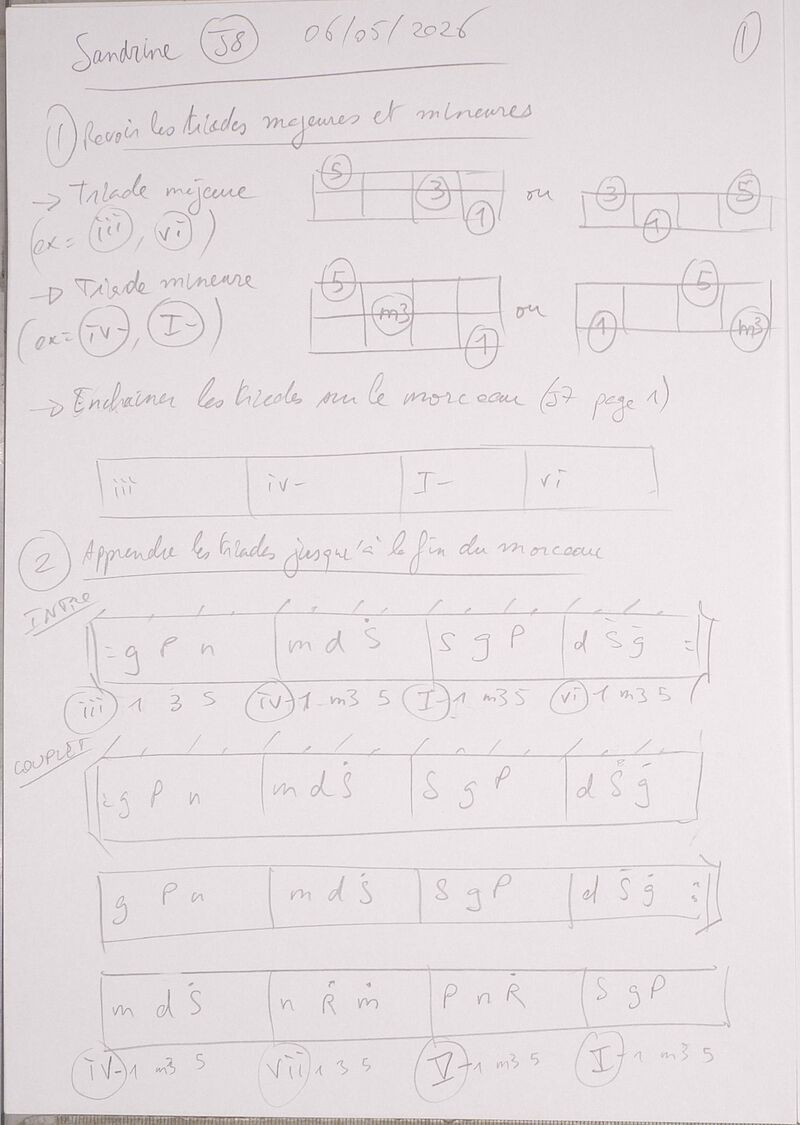 Sandrine J8 06/05/2026 1
1 Revoir les triades majeures et mineures
→ Triade majeure 5 3 1 ou 3 1 5
(ex = iii, vi)
→ Triade mineure 5 m3 1 ou 1 5 m3
(ex = iv-, I-)
→ Enchainer les triades sur le morceau (J7 page 1)
iii iv- I- vi
2 Apprendre les triades jusqu'à la fin du morceau
INTRO
g P n m d Ṡ S g P d Ṡ ġ
iii 1 3 5 iv- 1 m3 5 I- 1 m3 5 vi 1 m3 5
COUPLET
g P n m d Ṡ S g P d Ṡ ġ
g P n m d Ṡ S g P d Ṡ ġ
m d Ṡ n Ṙ ṁ P n Ṙ S g P
iv- 1 m3 5 vii 1 3 5 V- 1 m3 5 I- 1 m3 5